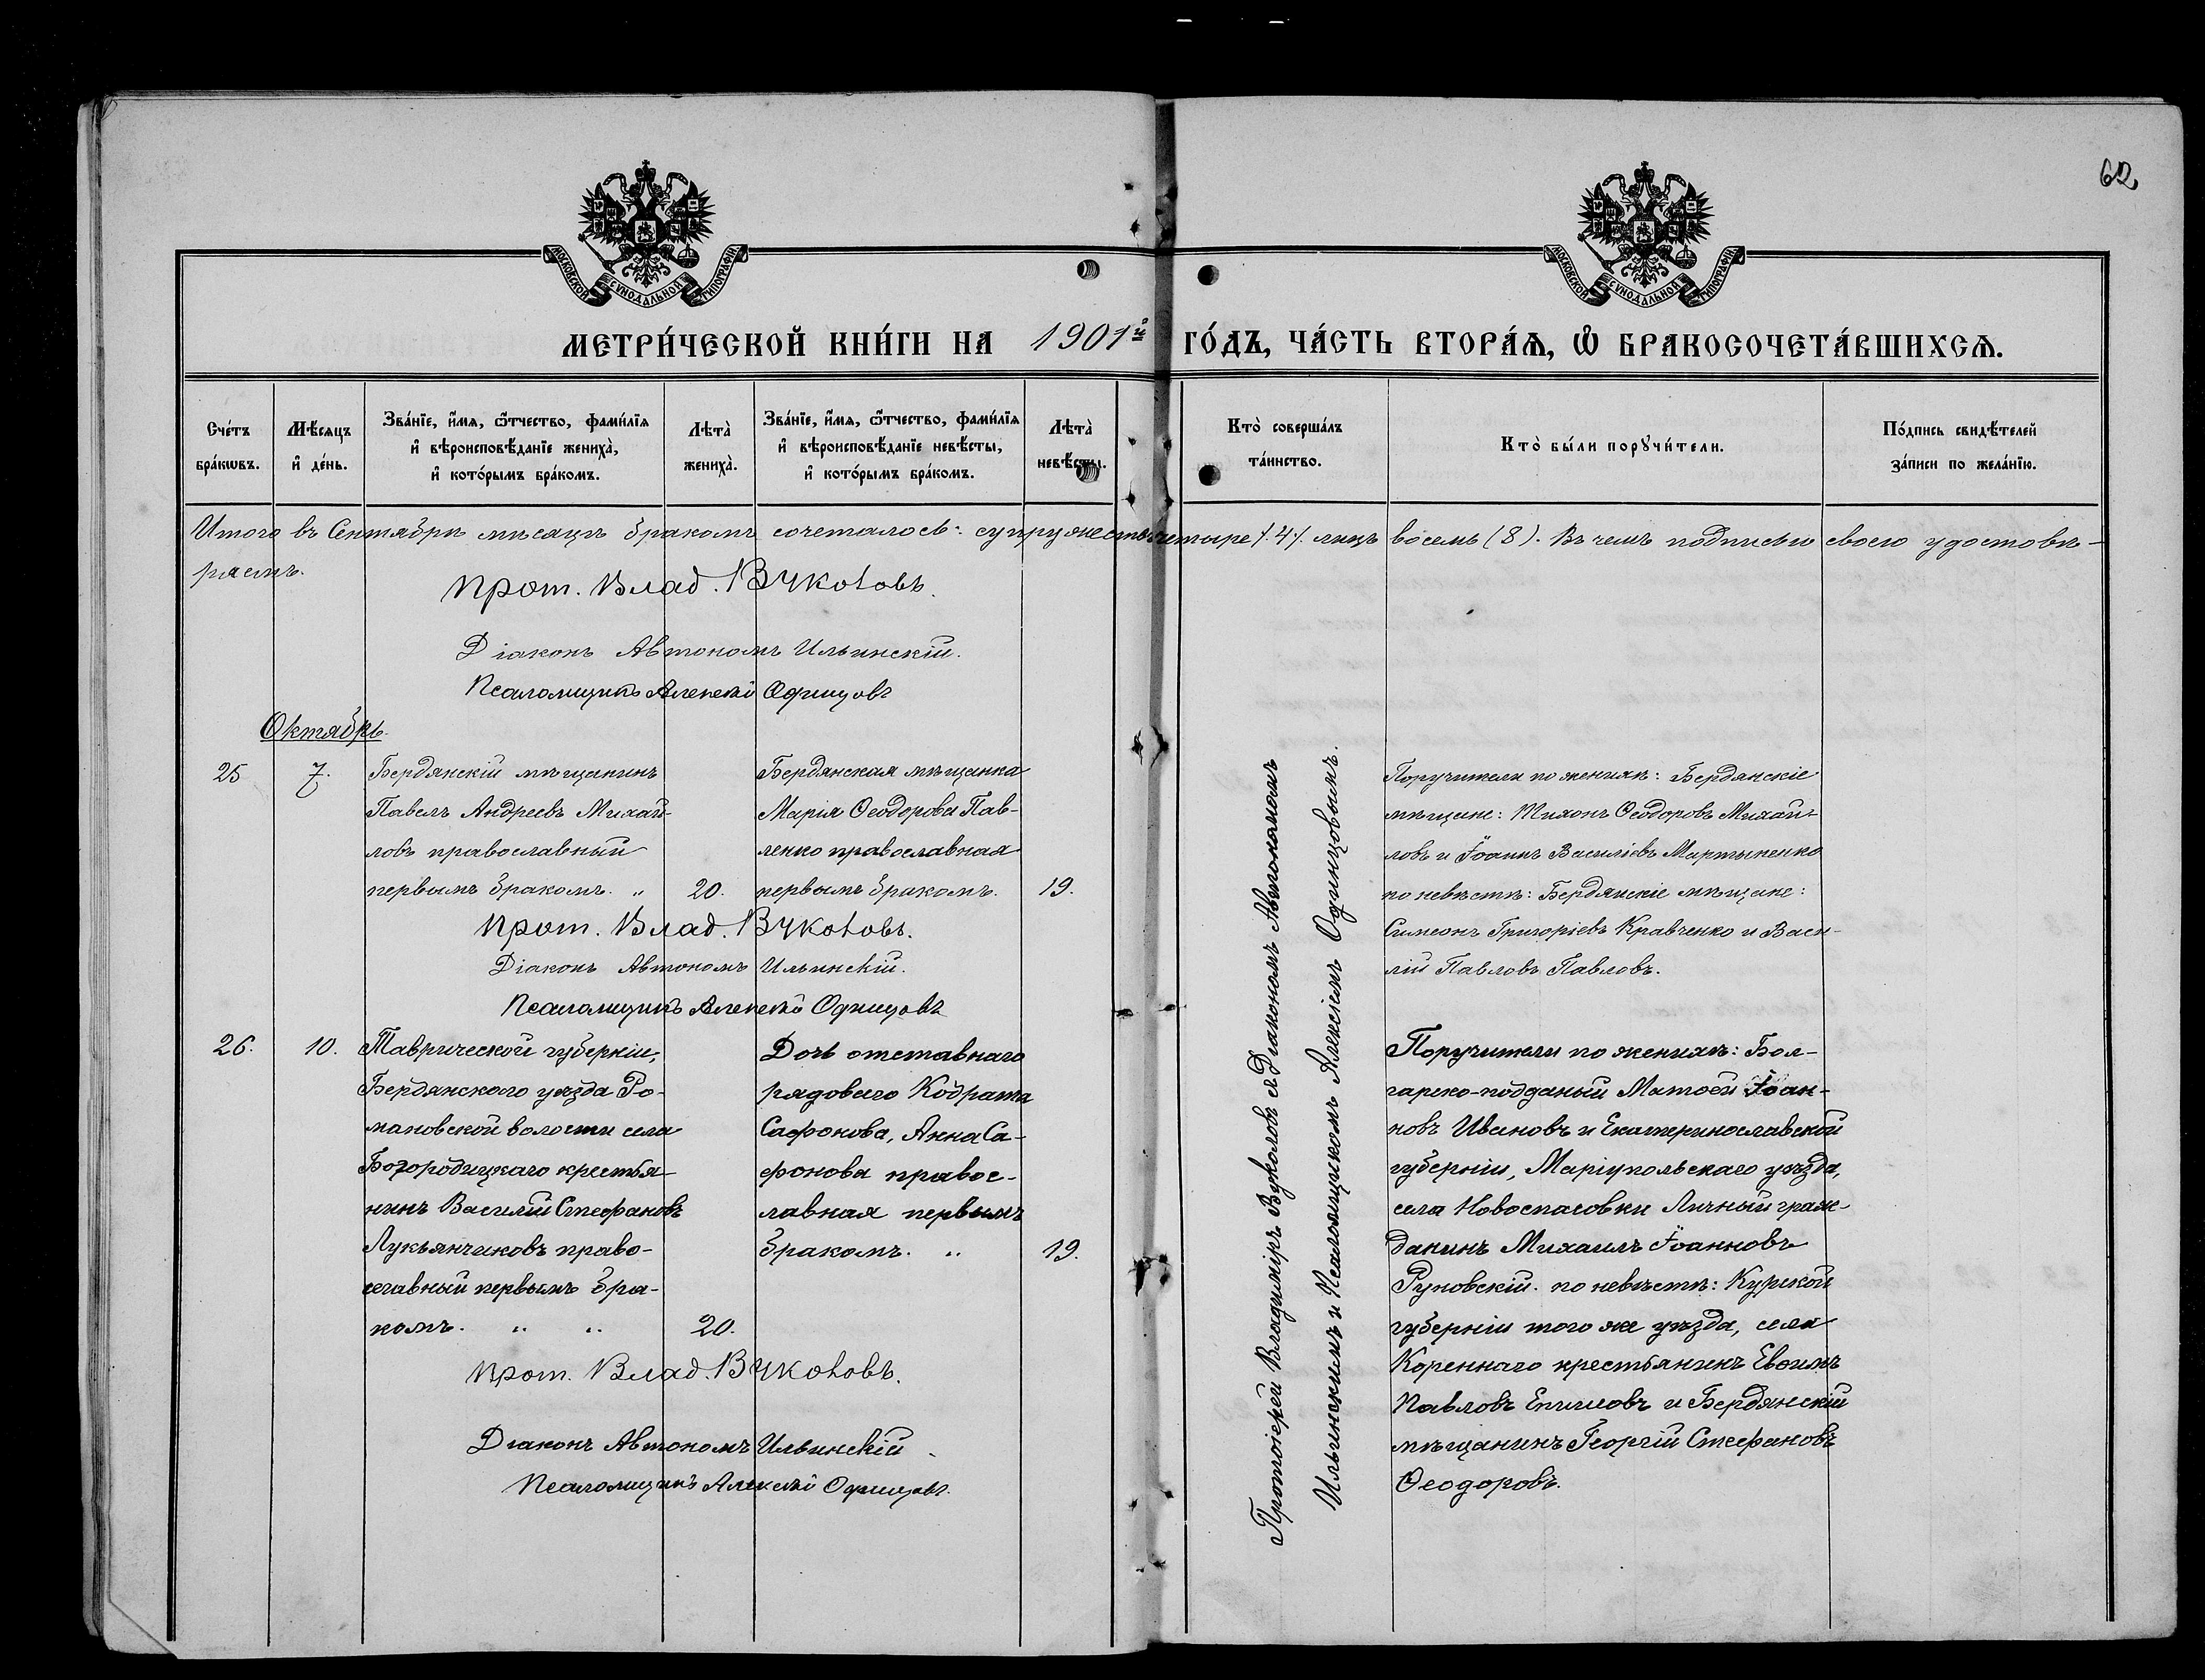 62
МОСКОВСКОЙ СѴНОДАЛЬНОЙ ТИПОГРАФІИ
МОСКОВСКОЙ СѴНОДАЛЬНОЙ ТИПОГРАФІИ
МЕТРИ́ЧЕСКОЙ КНИ́ГИ НА 1901й ГО́ДЪ, ЧА́СТЬ ВТОРА́Ѧ, Ѡ҆ БРАКОСОЧЕТА́ВШИХСѦ.
Сче́тъ
бра́кѡвъ.
Мѣ́сяцъ
и҆ де́нь.
Зва́нїе, и҆́мѧ, ѻ҆́тчество, фами́лїѧ
и҆ вѣроисповѣ́данїе жениха̀,
и҆ кото́рымъ бра́комъ.
Лѣта̀
жениха̀.
Зва́нїе, и҆́мѧ, ѻ҆́тчество, фами́лїѧ
и҆ вѣроисповѣ́данїе невѣ́сты,
и҆ кото́рымъ бра́комъ.
Лѣта̀
невѣ́сты.
Кто̀ соверша́лъ
та́инство.
Кто̀ бы́ли порꙋчи́тели.
По́дпись свидѣ́телей
за́писи по жела́нїю.
Итого въ Сентябрѣ мѣсяцѣ бракомъ сочеталось: супружествъ четыре /.4/. лицъ восемь (8). Въ чемъ подписью своею удостовѣ-
ряемъ.
Прот. Влад. Вуколовъ.
Діаконъ Автономъ Ильинскій.
Псаломщикъ Алексѣй Одинцовъ
Октябрь.
25
7.
Бердянскій мѣщанинъ
Павелъ Андреевъ Михай-
ловъ православный
первымъ бракомъ. „
20.
Бердянская мѣщанка
Марія Ѳеодорова Пав-
ленко православная
первымъ бракомъ.
19.
Протоіерей Владиміръ Вуколовъ съ Діакономъ Автономомъ
Ильинскимъ и Псаломщикомъ Алексіемъ Одинцовымъ.
Поручители по женихѣ: Бердянскіе
мѣщане: Тихонъ Ѳеодоровъ Михай-
ловъ и Іоаннъ Василіевъ Мартыненко
по невѣстѣ: Бердянскіе мѣщане:
Симеонъ Григоріевъ Кравченко и Васи-
лій Павловъ Павловъ.
Прот. Влад. Вуколовъ.
Діаконъ Автономъ Ильинскій.
Псаломщикъ Алексѣй Одинцовъ
26.
10.
Таврической губерніи,
Бердянскаго уѣзда Ро-
мановской волости села
Богородицкаго крестья-
нинъ Василій Стефановъ
Лукьянчиковъ право-
славный первымъ бра-
комъ. „ „
20.
Дочь отставнаго
рядоваго Кодрата
Сафонова, Анна Са-
фонова правос-
лавная первымъ
бракомъ. „
19.
Поручители по женихѣ: Бол-
гарско-подданый Матѳей Іоан-
новъ Ивановъ и Екатеринославской
губерніи, Маріупольскаго уѣзда,
села Новоспасовки Личный граж-
данинъ Михаилъ Іоанновъ
Руновскій. по невѣстѣ: Курской
губерніи того же уѣзда, села
Кореннаго крестьянинъ Евѳимъ
Павловъ Епишовъ и Бердянскій
мѣщанинъ Георгій Стефановъ
Ѳеодоровъ.
Прот. Влад. Вуколовъ.
Діаконъ Автономъ Ильинскій
Псаломщикъ Алексѣй Одинцовъ.